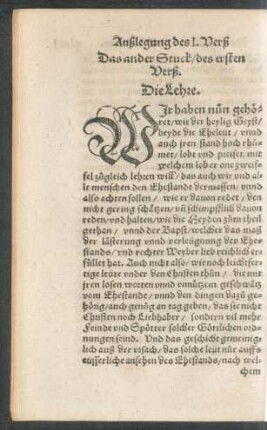 Außlegung des I. Verß
Das ander Stuck/ des ersten
Verß.
Die Lehre.
WIr haben nůn gehö-
ret/ wie der heylig Geyst/
beyde die Eheleut / vnnd
auch jren stand hoch rhů-
met/ lobt vnd preiset, mit
welchem lober one zweif-
fel zůgleich lehren will/ das auch wir vnd al-
le menschen den Ehestandt dermassen / vnnd
also achten sollen / wie er dauon redet / den
nicht gering schätzen/ vñ schimpfflich dauon
reden/ vnd halten/ wie die Heyden zům theil
gethan / vnnd der Bapst/ welcher das maß
der lästerung vnnd verleugnung des Ehe-
stands/ vnd rechter Weyber leid reichlich er-
füllet hat. Auch nicht also/ wie noch leichtfer-
tige leute vnder den Christen thůn / die mit
jren losen worten vnnd vnnützem geschwätz
vom Ehestande / vnnd den dingen dazů ge-
hörig/ auch genůg an tag geben / das sie nicht
Christen noch Liebhaber / sondern vil mehr
Feinde vnd Spötter solcher Göttlichen ord-
nungen seind. Vnd das geschicht gemeinig-
lich auß der vrsach/ das solche leut nur auffs
eüsserliche ansehen des Ehestands/ nach wel-
chem